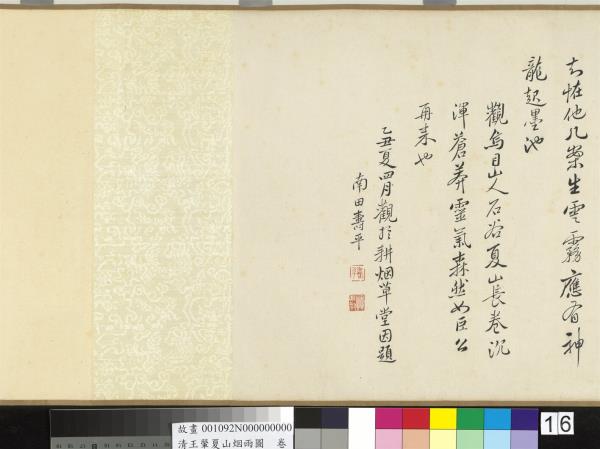 莫怪他几案生雲霧應有神
龍起墨池
觀烏目山人石谷夏山長卷沉
渾蒼莽靈氣森然如巨公
再来也
乙丑夏四月觀於耕烟草堂因題
南田壽平
故畫 001092N000000000
清王翬夏山烟雨圖 卷
16